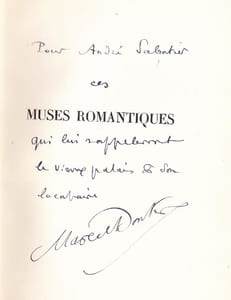 Pour André Sabatier
ces
MUSES ROMANTIQUES
qui lui rappelleront
le vieux palais & son
locataire
Marcel